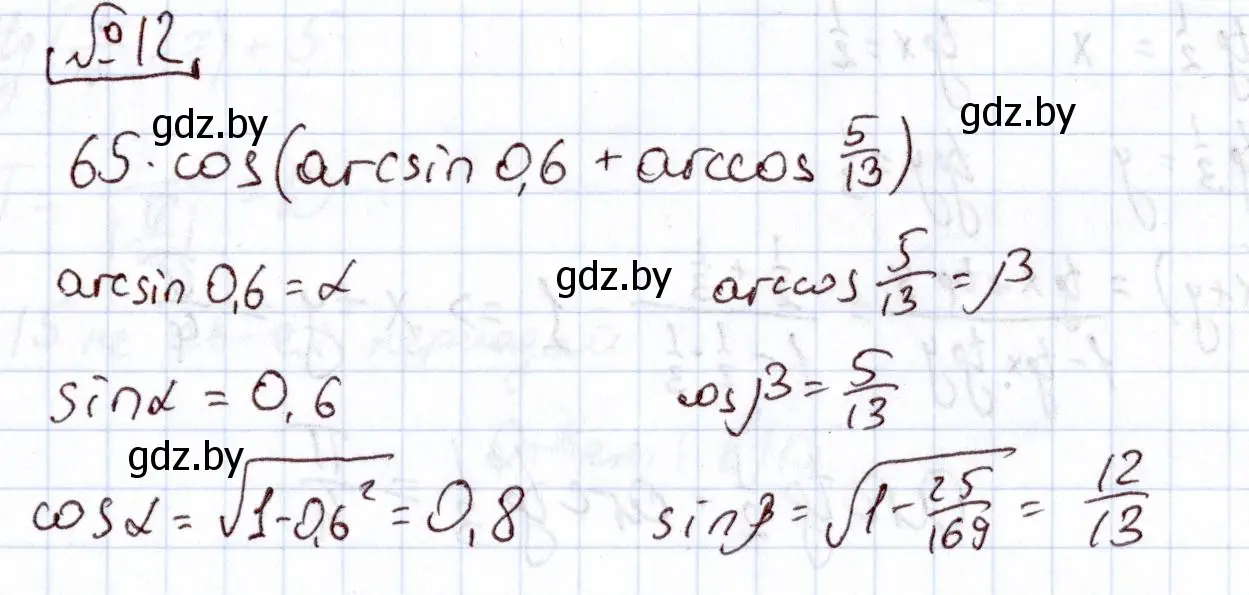 №12
gdz.by
gdz.by
65·cos(arcsin 0,6 + arccos 5/13)
arcsin 0,6 = α gdz.by arccos 5/13 = β
sinα = 0,6 cosβ = 5/13
gdz.by
cosα = √(1-0,6²) = 0,8 sinβ = √(1-25/169) = 12/13